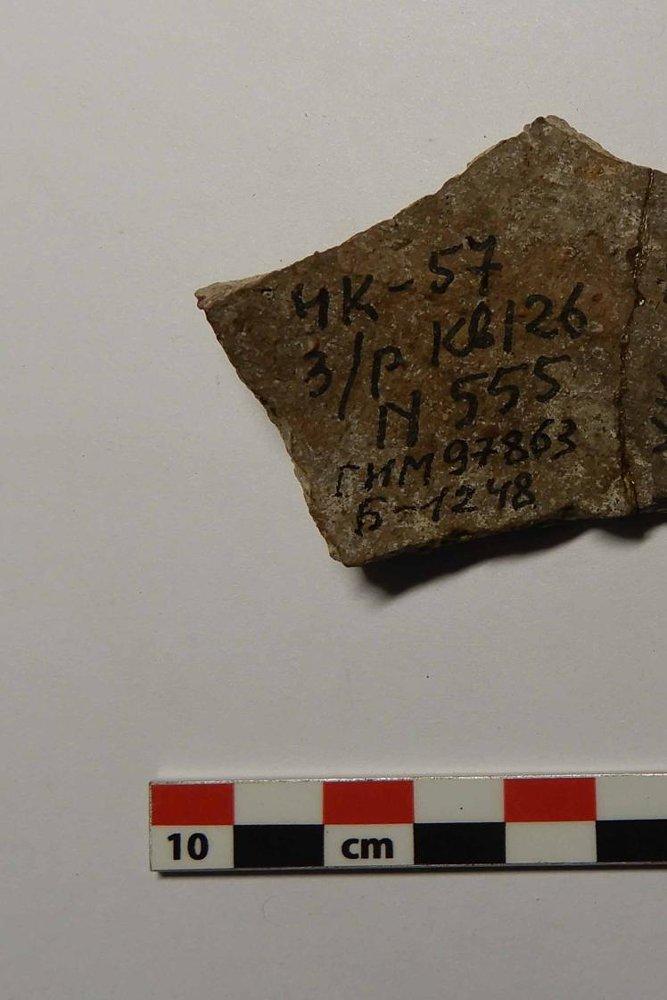 ЧК-57
З/р Кв126
N 555
ГИМ 97863
Б-1248
10 cm